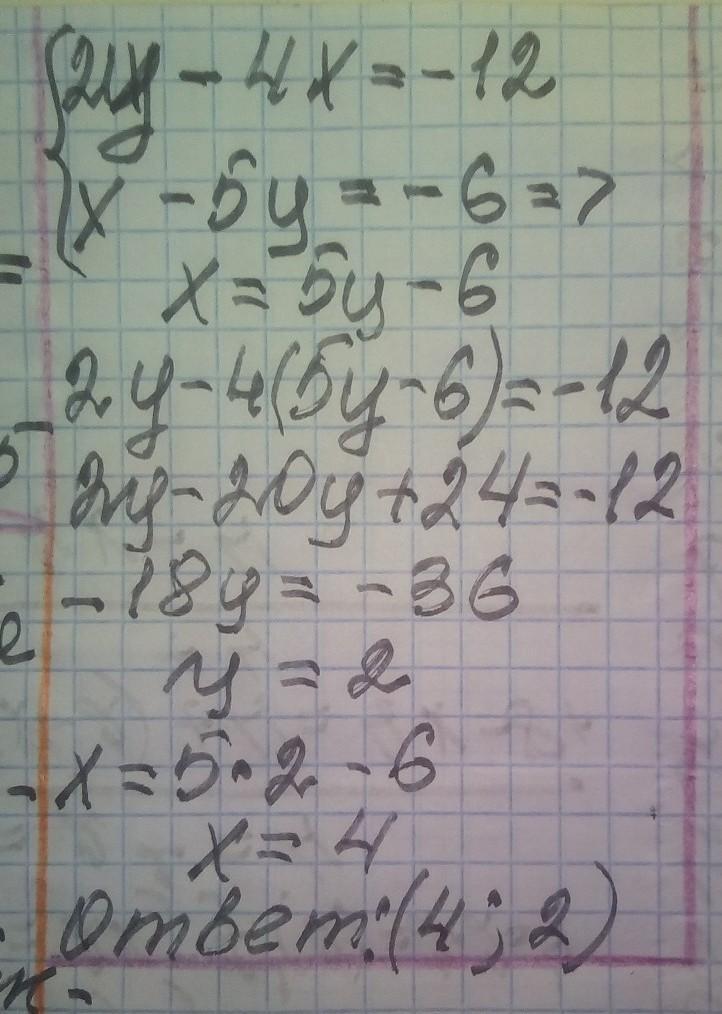 {2y - 4x = -12
x - 5y = -6 =>
x = 5y - 6
2y - 4(5y - 6) = -12
2y - 20y + 24 = -12
-18y = -36
y = 2
x = 5·2 - 6
x = 4
Ответ: (4; 2)